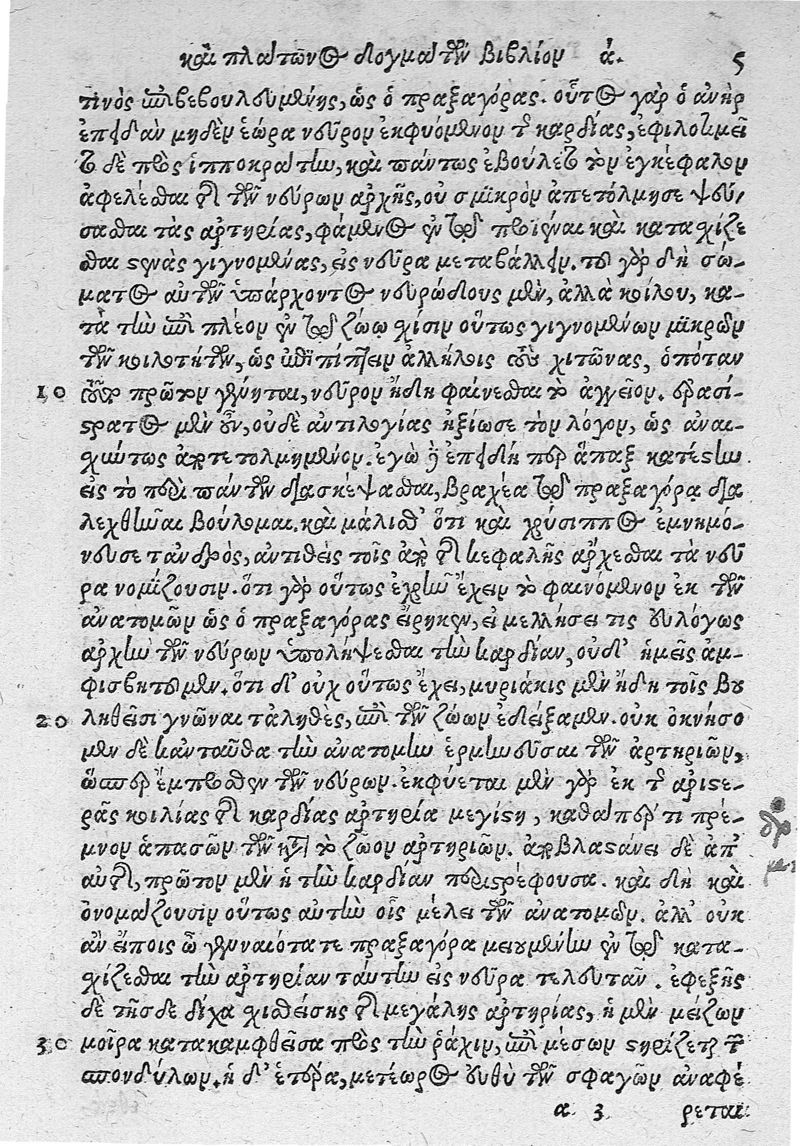 καὶ πλάτωνος δογμάτων βιβλίον ά. 5
τινὸς ἐπιβεβουλευμένης, ὡς ὁ πραξαγόρας. οὗτος γὰρ ὁ ἀνὴρ
ἐπειδὰν μηδὲν ἑώρα νεῦρον ἐκφυόμενον τῆς καρδίας, ἐφιλοτιμεῖ
το δὲ πρὸς ἱπποκράτην, καὶ πάντως ἐβούλετο τὸν ἐγκέφαλον
ἀφελέσθαι τῆς τῶν νεύρων ἀρχῆς, οὐ σμικρὸν ἀπετόλμησε ψεύ-
σασθαι τὰς ἀρτηρίας, φάμενος ἐν τῷ προϊέναι καὶ κατασχίζε
σθαι στενὰς γιγνομένας, εἰς νεῦρα μεταβάλλειν. τοῦ γὰρ δὴ σώ-
ματος αὐτῶν ὑπάρχοντος νευρώδους μὲν, ἀλλὰ κοίλου, κα-
τὰ τὴν ἐπὶ πλέον ἐν τῷ ζώῳ σχίσιν οὕτως γιγνομένων μικρῶν
τῶν κοιλοτήτων, ὡς ἐπιπίπτειν ἀλλήλοις τοὺς χιτῶνας, ὁπόταν
10 τοῦτο πρῶτον γένηται, νεῦρον ἤδη φαίνεσθαι τὸ ἀγγεῖον. ἐρασί-
στρατος μὲν οὖν, οὐδὲ ἀντιλογίας ἠξίωσε τὸν λόγον, ὡς ἀναι-
σχύντως ἀποτετολμημένον. ἐγὼ δὲ ἐπειδή περ ἅπαξ κατέστην
εἰς τὸ περὶ πάντων διασκέψασθαι, βραχέα τῷ πραξαγόρᾳ δια
λεχθῆναι βούλομαι. καὶ μάλισθ' ὅτι καὶ χρύσιππος ἐμνημό-
νευσε τἀνδρὸς, ἀντιθεὶς τοῖς ἀπὸ τῆς κεφαλῆς ἄρχεσθαι τὰ νεῦ
ρα νομίζουσιν. ὅτι γὰρ οὕτως ἐχρῆν ἔχειν τὸ φαινόμενον ἐκ τῶν
ἀνατομῶν ὡς ὁ πραξαγόρας εἴρηκεν, εἰ μελλήσει τις εὐλόγως
ἀρχὴν τῶν νεύρων ὑπολήψεσθαι τὴν καρδίαν, οὐδ' ἡμεῖς ἀμ-
φισβητοῦμεν. ὅτι δ' οὐχ οὕτως ἔχει, μυριάκις μὲν ἤδη τοῖς βου
20 ληθεῖσι γνῶναι τἀληθὲς, ἐπὶ τῶν ζώων ἐδείξαμεν. οὐκ ὀκνήσο
μεν δὲ κἀνταῦθα τὴν ἀνατομὴν ἑρμηνεῦσαι τῶν ἀρτηριῶν,
ὥσπερ ἔμπροσθεν τῶν νεύρων. ἐκφύεται μὲν γὰρ ἐκ τῆς ἀριστε-
ρᾶς κοιλίας τῆς καρδίας ἀρτηρία μεγίστη, καθάπερ τι πρέ-
μνον ἁπασῶν τῶν κατὰ τὸ ζῶον ἀρτηριῶν. ἀποβλαστάνει δὲ ἀπ'
αὐτῆς, πρῶτον μὲν ἡ τὴν καρδίαν περιστρέφουσα. καὶ δὴ καὶ
ὀνομάζουσιν οὕτως αὐτὴν οἷς μέλει τῶν ἀνατομῶν. ἀλλ' οὐκ
ἂν εἴποις ὦ γενναιότατε πραξαγόρα μειουμένην ἐν τῷ κατα-
σχίζεσθαι τὴν ἀρτηρίαν ταύτην εἰς νεῦρα τελευτᾶν. ἐφεξῆς
δὲ τῆσδε δίχα σχισθείσης τῆς μεγάλης ἀρτηρίας, ἡ μὲν μείζων
30 μοῖρα κατακαμφθεῖσα πρὸς τὴν ῥάχιν, ἐπὶ μέσων στηρίζεται τῶν
σπονδύλων. ἡ δ' ἑτέρα, μετέωρος εὐθὺ τῶν σφαγῶν ἀναφέ
α 3 ρεται